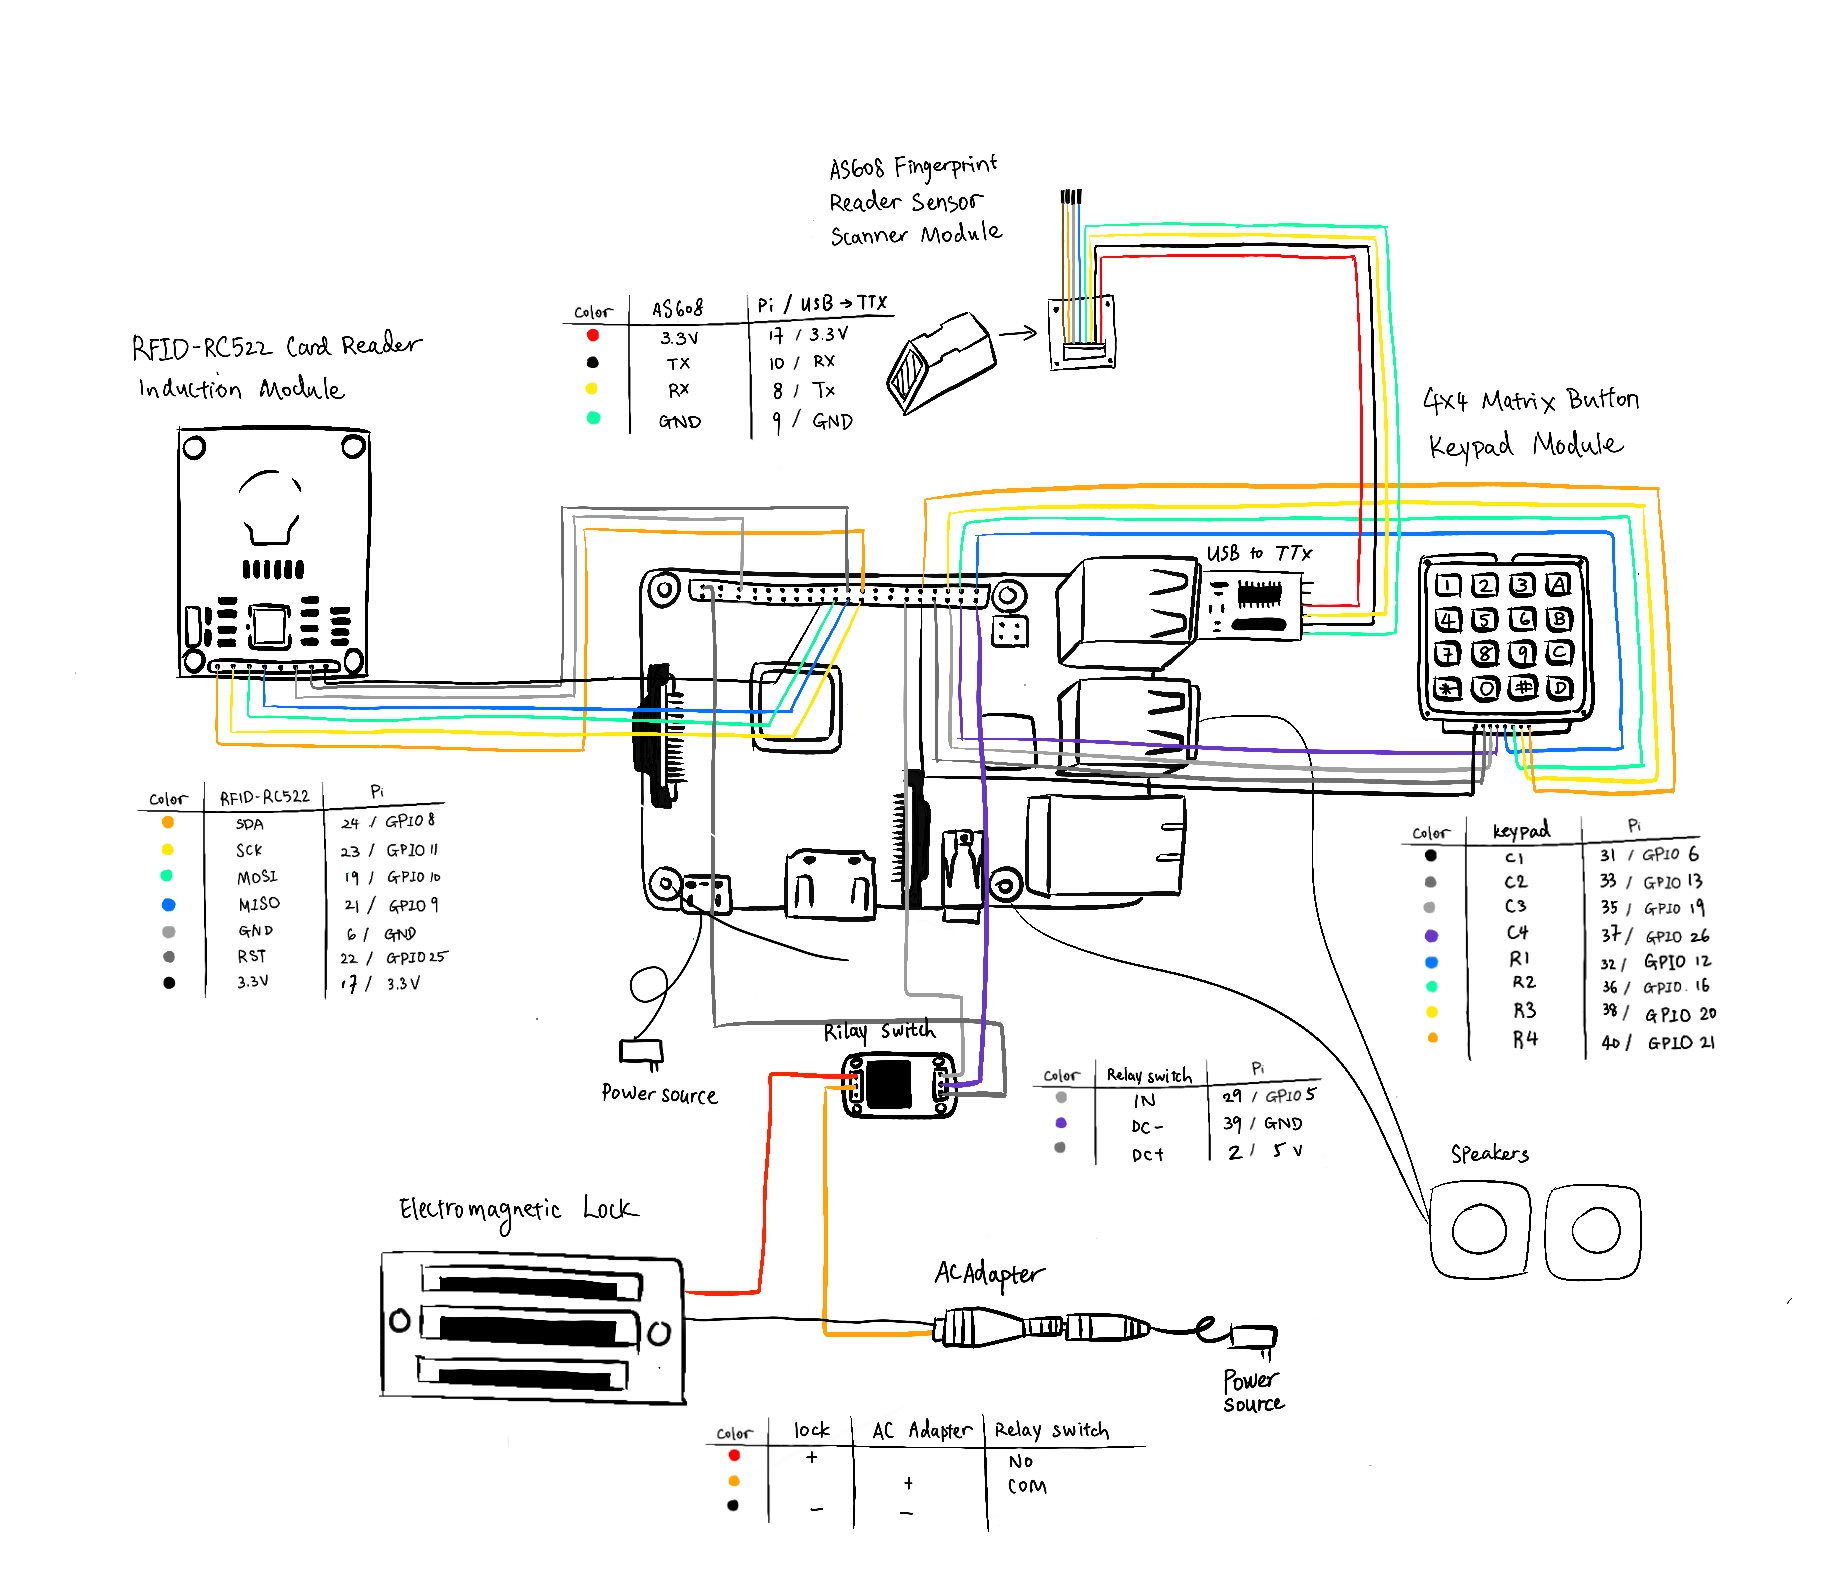 AS608 Fingerprint
Reader Sensor
Scanner Module
Color AS608 Pi / USB → TTX
3.3V 17 / 3.3V
TX 10 / RX
RX 8 / Tx
GND 9 / GND
RFID-RC522 Card Reader
Induction Module
4x4 Matrix Button
Keypad Module
USB to TTX
1 2 3 A
4 5 6 B
7 8 9 C
* 0 # D
Color RFID-RC522 Pi
SDA 24 / GPIO 8
SCK 23 / GPIO 11
MOSI 19 / GPIO 10
MISO 21 / GPIO 9
GND 6 / GND
RST 22 / GPIO 25
3.3V 17 / 3.3V
Color keypad Pi
C1 31 / GPIO 6
C2 33 / GPIO 13
C3 35 / GPIO 19
C4 37 / GPIO 26
R1 32 / GPIO 12
R2 36 / GPIO. 16
R3 38 / GPIO 20
R4 40 / GPIO 21
Rilay Switch
Power source
Color Relay switch Pi
IN 29 / GPIO 5
DC- 39 / GND
DC+ 2 / 5V
Speakers
Electromagnetic Lock
AC Adapter
Power
source
Color lock AC Adapter Relay switch
+ NO
+ COM
- -